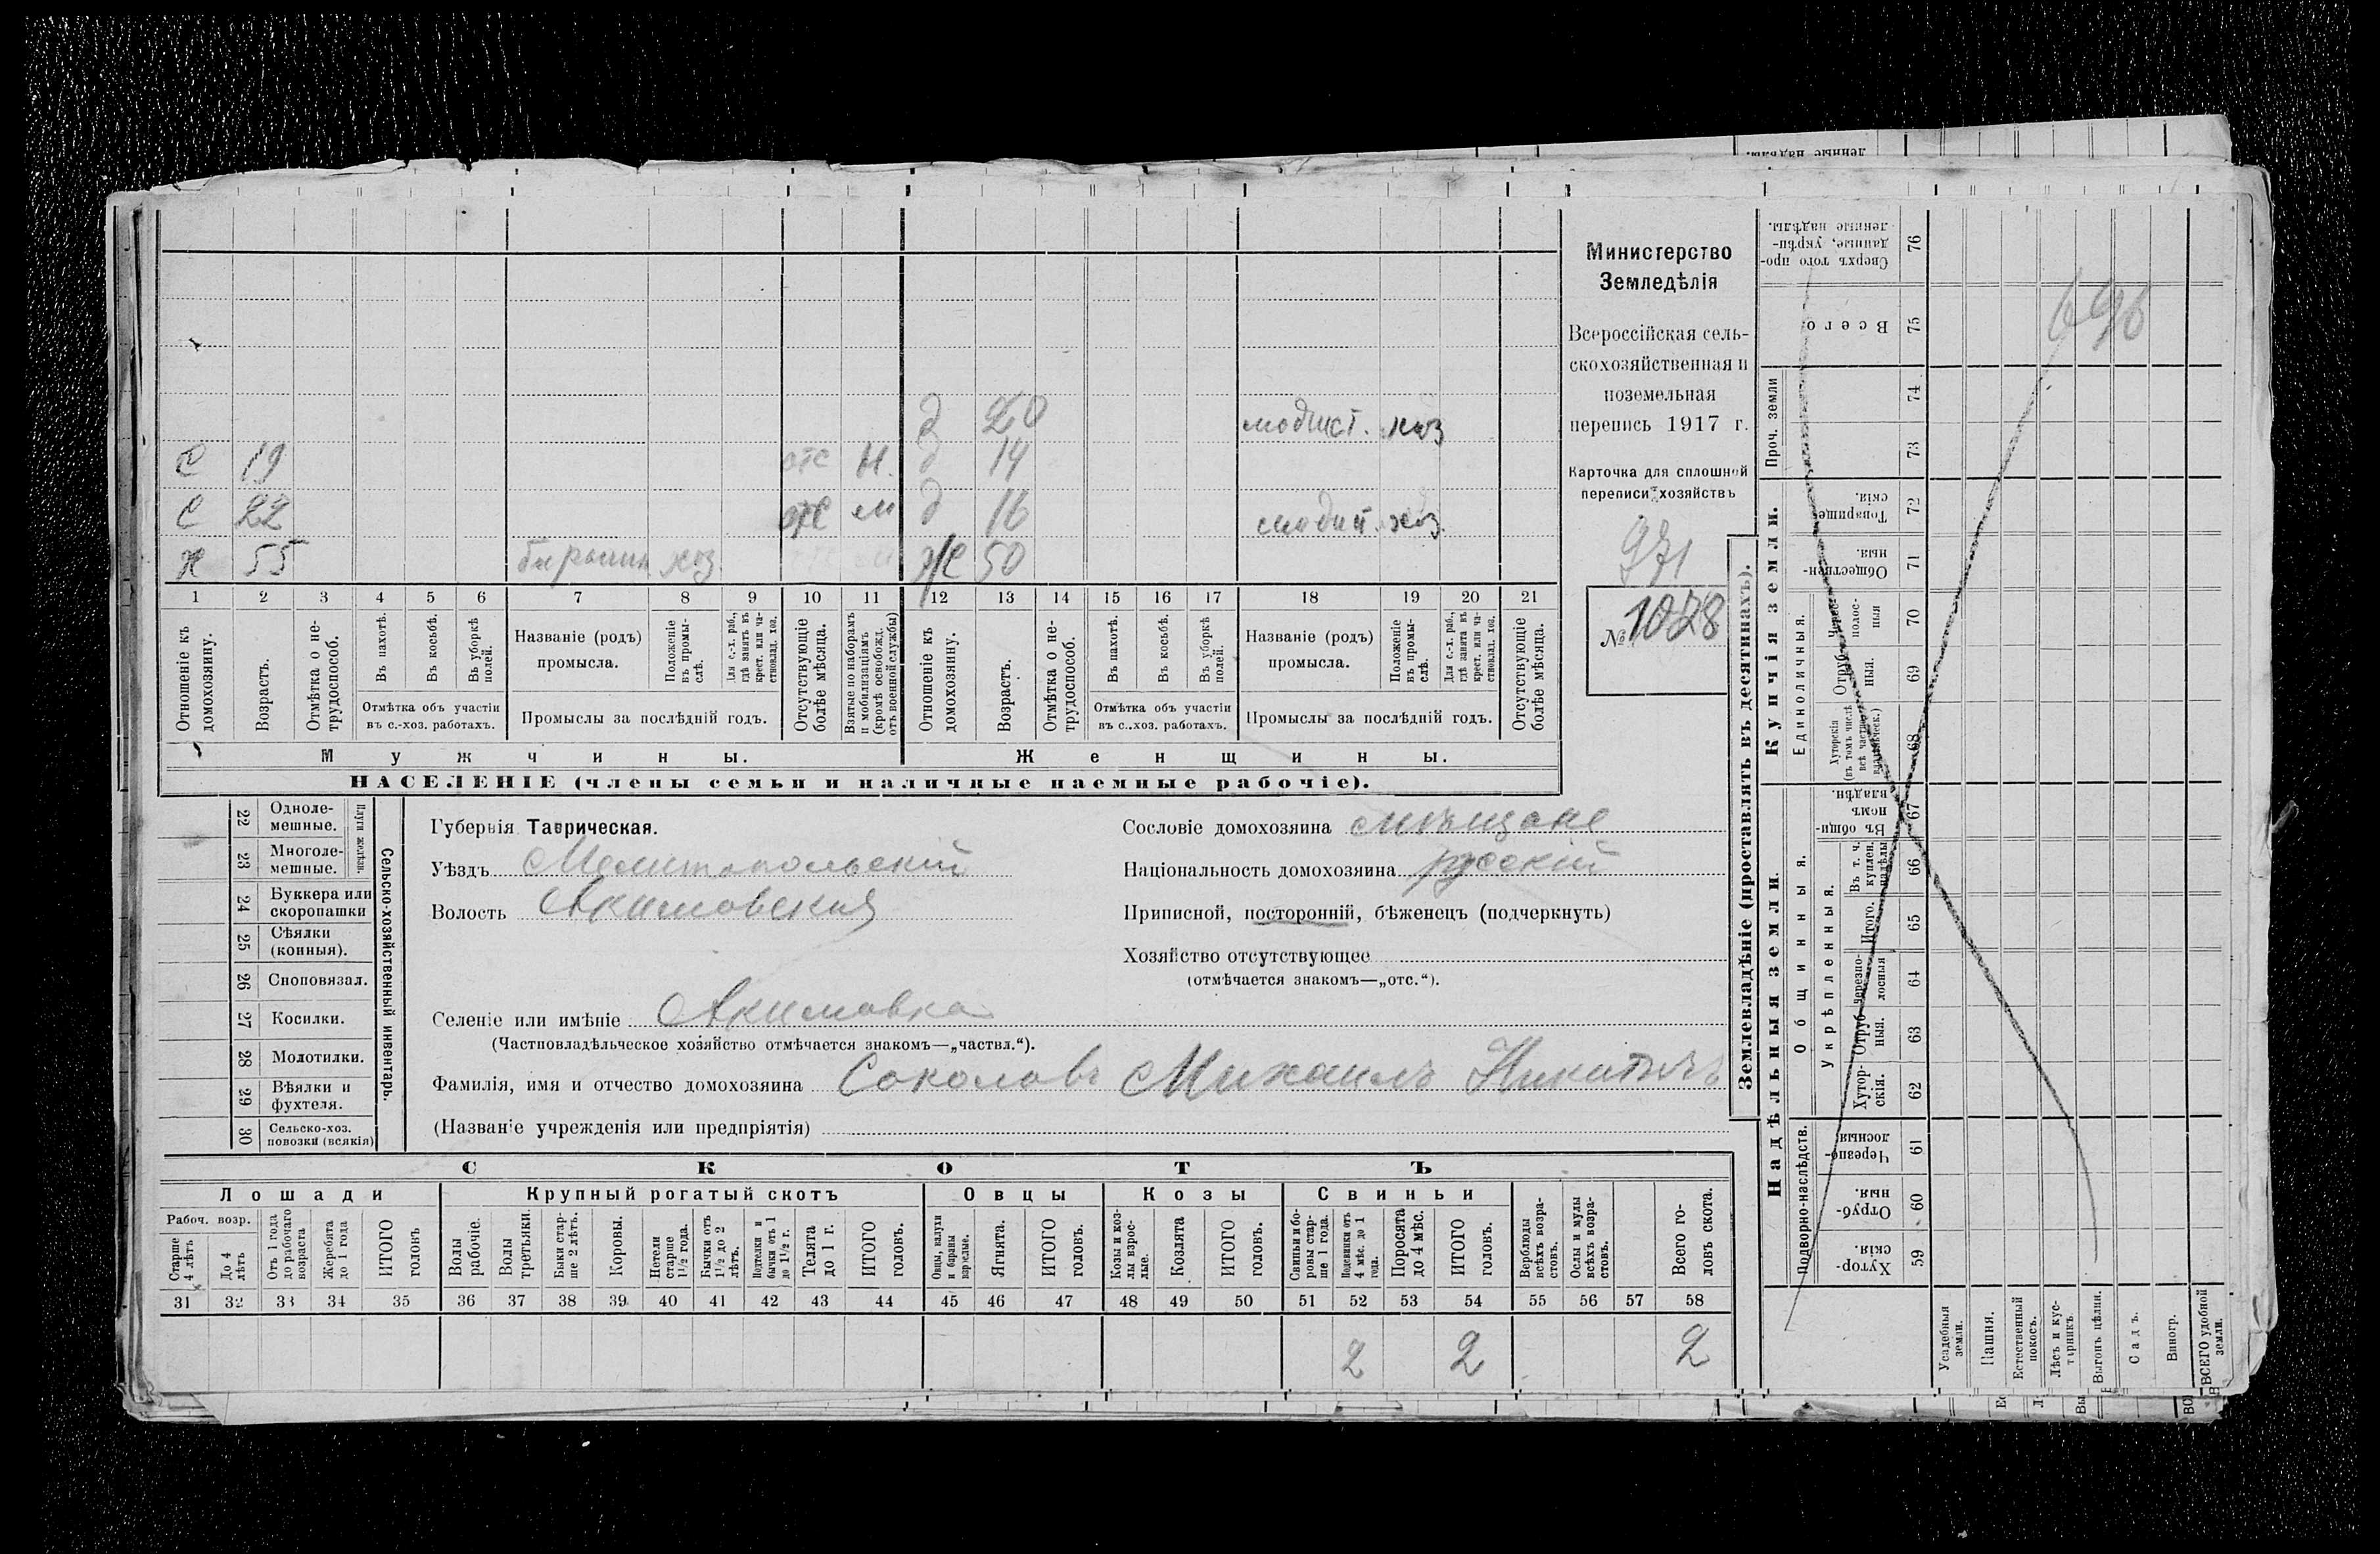 Министерство
Земледѣлія
Всероссійская сель-
скохозяйственная и
поземельная
перепись 1917 г.
Карточка для сплошной
переписи хозяйствъ
971
№ 1028
д 20 модист. хоз
с 19 отс н. д 14
с 22 отс м д 16 модист. хоз.
х 55 хоз ж 50
1 2 3 4 5 6 7 8 9 10 11 12 13 14 15 16 17 18 19 20 21
Отношеніе къ домохозяину.
Возрастъ.
Отмѣтка о не-трудоспособ.
Въ пахотѣ.
Въ косьбѣ.
Въ уборкѣ полей.
Отмѣтка объ участіи въ с.-хоз. работахъ.
Названіе (родъ) промысла.
Положеніе въ промы-слѣ.
Для с.-х. раб., гдѣ занятъ въ крест. или ча-стновлад. хоз.
Промыслы за послѣдній годъ.
Отсутствующіе болѣе мѣсяца.
Взятые по наборамъ и мобилизаціямъ (кромѣ освобожд. отъ военной службы)
Отношеніе къ домохозяину.
Возрастъ.
Отмѣтка о не-трудоспособ.
Въ пахотѣ.
Въ косьбѣ.
Въ уборкѣ полей.
Отмѣтка объ участіи въ с.-хоз. работахъ.
Названіе (родъ) промысла.
Положеніе въ промы-слѣ.
Для с.-х. раб., гдѣ занята въ крест. или ча-стновлад. хоз.
Промыслы за послѣдній годъ.
Отсутствующіе болѣе мѣсяца.
Мужчины. Женщины.
НАСЕЛЕНІЕ (члены семьи и наличные наемные рабочіе).
Сельско-хозяйственный инвентарь.
Плуги желѣзн.
22 Одноле-мешные.
23 Многоле-мешные.
24 Буккера или скоропашки
25 Сѣялки (конныя).
26 Сноповязал.
27 Косилки.
28 Молотилки.
29 Вѣялки и фухтеля.
30 Сельско-хоз. повозки (всякія)
Губернія Таврическая.
Уѣздъ Мелитопольскій
Волость Акимовская
Селеніе или имѣніе Акимовка
(Частновладѣльческое хозяйство отмѣчается знакомъ—„частвл.“).
Фамилія, имя и отчество домохозяина Соколовъ Михаилъ Никитичъ
(Названіе учрежденія или предпріятія)
Сословіе домохозяина мѣщане
Національность домохозяина русскій
Приписной, посторонній, бѣженецъ (подчеркнуть)
Хозяйство отсутствующее
(отмѣчается знакомъ—„отс.“).
СКОТЪ
Лошади Крупный рогатый скотъ Овцы Козы Свиньи
Рабоч. возр.
Старше 4 лѣтъ
До 4 лѣтъ
Отъ 1 года до рабочаго возраста
Жеребята до 1 года
ИТОГО головъ
Волы рабочіе.
Волы третьяки.
Быки стар-ше 2 лѣтъ.
Коровы.
Нетели старше 1½ года.
Бычки отъ 1½ до 2 лѣтъ.
Подтелки и бычки отъ 1 до 1½ г.
Телята до 1 г.
ИТОГО головъ.
Овцы, валухи и бараны взрослые.
Ягнята.
ИТОГО головъ.
Козы и коз-лы взрос-лые.
Козлята
ИТОГО головъ.
Свиньи и бо-ровы стар-ше 1 года.
Подсвинки отъ 4 мѣс. до 1 года.
Поросята до 4 мѣс.
ИТОГО головъ.
Верблюды всѣхъ возра-стовъ.
Ослы и мулы всѣхъ возра-стовъ.
Всего го-ловъ скота.
31 32 33 34 35 36 37 38 39 40 41 42 43 44 45 46 47 48 49 50 51 52 53 54 55 56 57 58
2 2 2
Землевладѣніе (проставлять въ десятинахъ).
Надѣльныя земли.
Купчія земли.
Проч. земли
Подворно-наслѣдств.
Общинныя.
Укрѣпленныя.
Единоличныя.
Хутор-скія. 59
Отруб-ныя. 60
Черезпо-лосныя 61
Хутор-скія. 62
Отруб-ныя. 63
Черезпо-лосныя 64
Итого. 65
Въ т. ч. куплен. надѣлы 66
Въ общи-номъ владѣн. 67
Хуторскія (въ томъ числѣ всѣ частно-владѣльческ.) 68
Отруб-ныя. 69
Черес-полос-ныя 70
Обществен-ныя. 71
Товарище-скія. 72
73
74
Всего. 75
Сверхъ того про-данные, укрѣп-ленные надѣлы. 76
696
Усадебныя земли.
Пашня.
Естественный покосъ.
Лѣсъ и кус-тарникъ
Выгонъ цѣлин.
Садъ.
Виногр.
ВСЕГО удобной земли.